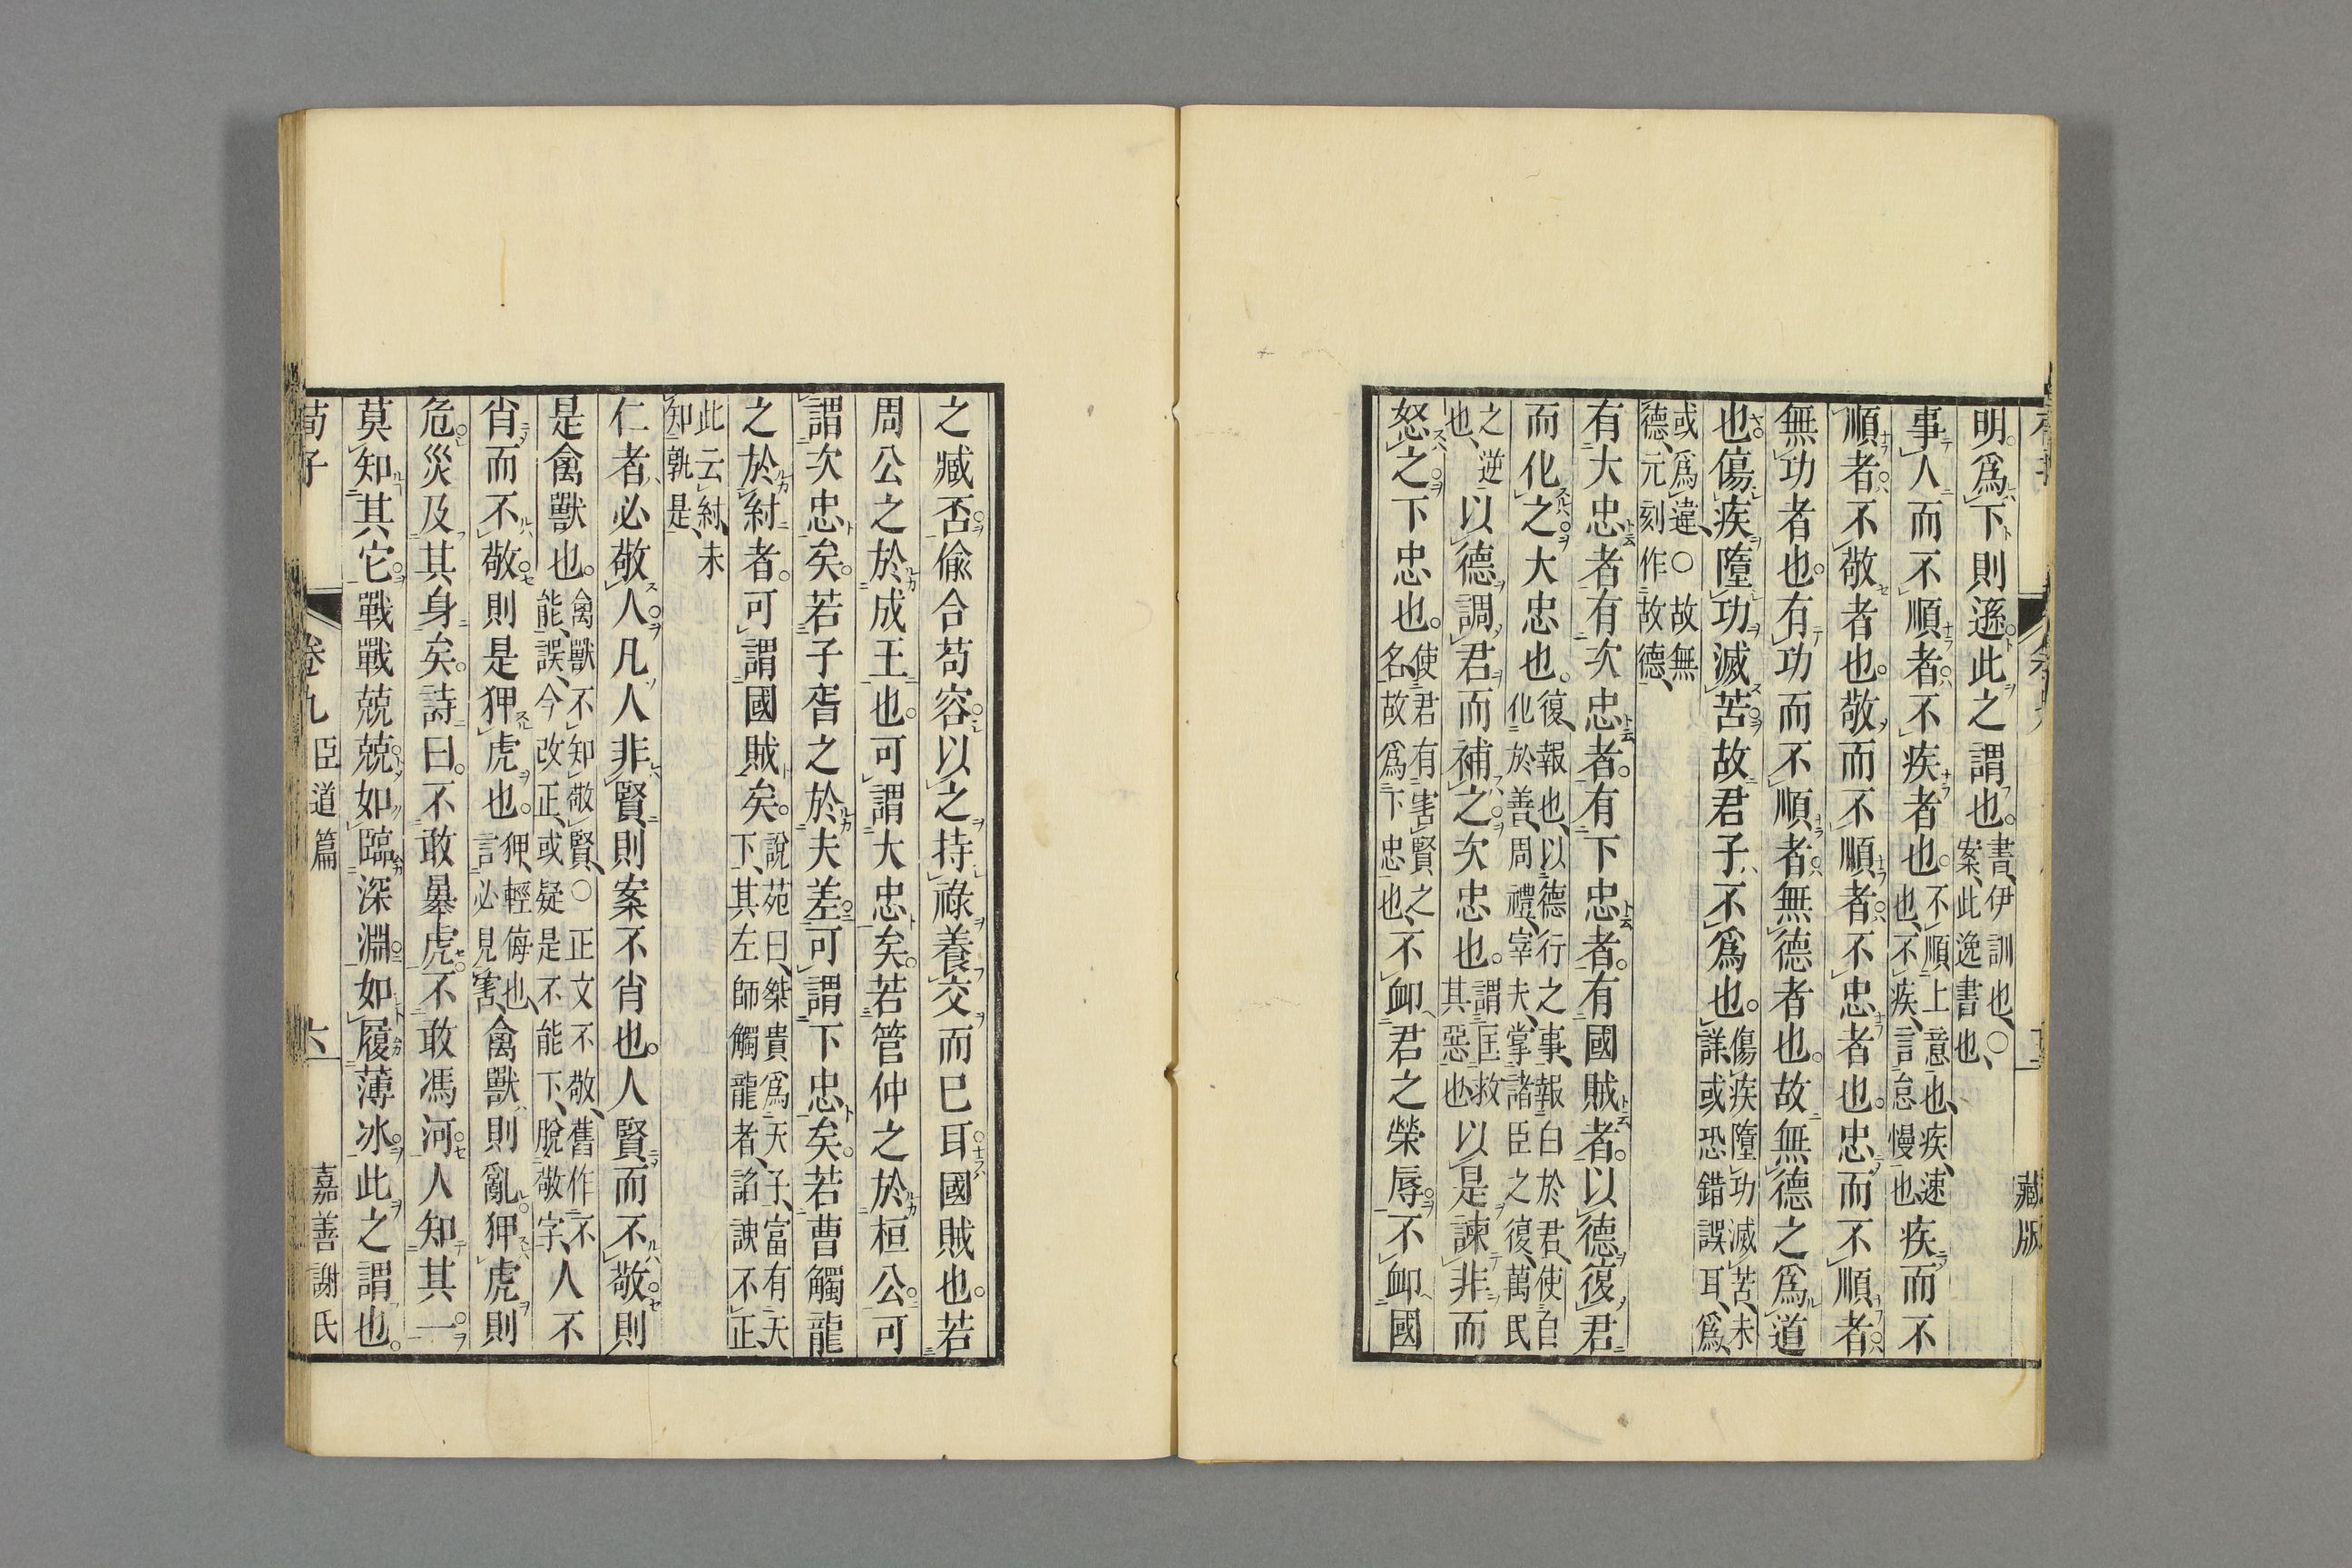 明爲下則遜此之謂也書伊訓也〇案此逸書也
事人而不順者不疾者也不順上意也疾速也不疾言怠慢也疾而不
順者不敬者也敬而不順者不忠者也忠而不順者
無功者也有功而不順者無德者也故無德之爲道
也傷疾墮功滅苦故君子不爲也傷疾墮功滅苦未詳或恐錯誤耳爲
或爲違〇故無德元刻作故德
有大忠者有次忠者有下忠者有國賊者以德復君
而化之大忠也復報也以德行之事報白於君使自化於善周禮宰夫掌諸臣之復萬民
之逆也以德調君而補之次忠也謂匡救其惡也以是諫非而
怒之下忠也使君有害賢之名故爲下忠也不卹君之榮辱不卹國
藏版
之臧否偷合苟容以之持祿養交而已耳國賊也若
周公之於成王也可謂大忠矣若管仲之於桓公可
謂次忠矣若子胥之於夫差可謂下忠矣若曹觸龍
之於紂者可謂國賊矣說苑曰桀貴爲天子富有天下其左師觸龍者諂諛不正
此云紂未知孰是
仁者必敬人凡人非賢則案不肖也人賢而不敬則
是禽獸也禽獸不知敬賢〇正文不敬舊作不能誤今改正或疑是不能下脫敬字人不
肖而不敬則是狎虎也狎輕侮也言必見害禽獸則亂狎虎則
危災及其身矣詩曰不敢暴虎不敢馮河人知其一
莫知其它戰戰兢兢如臨深淵如履薄冰此之謂也
荀子 卷九 臣道篇 六 嘉善謝氏